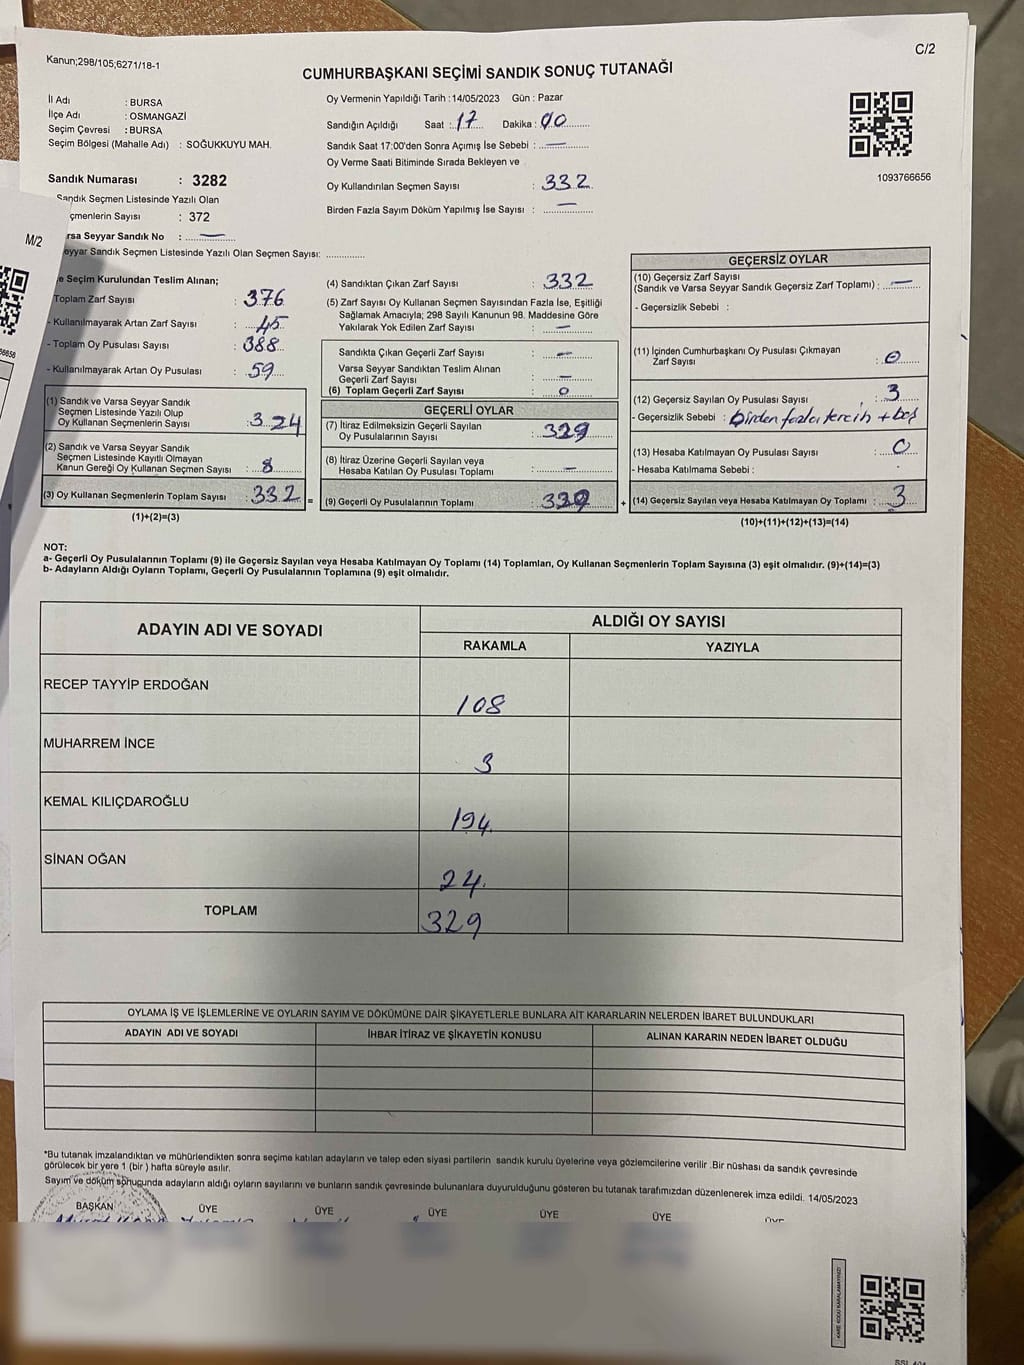 Kanun;298/105;6271/18-1
C/2
CUMHURBAŞKANI SEÇİMİ SANDIK SONUÇ TUTANAĞI
İl Adı : BURSA
İlçe Adı : OSMANGAZİ
Seçim Çevresi : BURSA
Seçim Bölgesi (Mahalle Adı) : SOĞUKKUYU MAH.
Sandık Numarası : 3282
Sandık Seçmen Listesinde Yazılı Olan
çmenlerin Sayısı : 372
rsa Seyyar Sandık No : —
eyyar Sandık Seçmen Listesinde Yazılı Olan Seçmen Sayısı:
Oy Vermenin Yapıldığı Tarih :14/05/2023 Gün : Pazar
Sandığın Açıldığı Saat : 17 Dakika : 00
Sandık Saat 17:00'den Sonra Açımış İse Sebebi : —
Oy Verme Saati Bitiminde Sırada Bekleyen ve
Oy Kullandırılan Seçmen Sayısı : 332
Birden Fazla Sayım Döküm Yapılmış İse Sayısı : —
1093766656
M/2
e Seçim Kurulundan Teslim Alınan;
Toplam Zarf Sayısı : 376
- Kullanılmayarak Artan Zarf Sayısı : 45
- Toplam Oy Pusulası Sayısı : 388
- Kullanılmayarak Artan Oy Pusulası : 59
(1) Sandık ve Varsa Seyyar Sandık
Seçmen Listesinde Yazılı Olup
Oy Kullanan Seçmenlerin Sayısı : 324
(2) Sandık ve Varsa Seyyar Sandık
Seçmen Listesinde Kayıtlı Olmayan
Kanun Gereği Oy Kullanan Seçmen Sayısı : 8
(3) Oy Kullanan Seçmenlerin Toplam Sayısı : 332 =
(1)+(2)=(3)
(4) Sandıktan Çıkan Zarf Sayısı : 332
(5) Zarf Sayısı Oy Kullanan Seçmen Sayısından Fazla İse, Eşitliği
Sağlamak Amacıyla; 298 Sayılı Kanunun 98. Maddesine Göre
Yakılarak Yok Edilen Zarf Sayısı : —
Sandıkta Çıkan Geçerli Zarf Sayısı : —
Varsa Seyyar Sandıktan Teslim Alınan
Geçerli Zarf Sayısı : —
(6) Toplam Geçerli Zarf Sayısı : 0
GEÇERLİ OYLAR
(7) İtiraz Edilmeksizin Geçerli Sayılan
Oy Pusulalarının Sayısı : 329
(8) İtiraz Üzerine Geçerli Sayılan veya
Hesaba Katılan Oy Pusulası Toplamı : —
(9) Geçerli Oy Pusulalarının Toplamı : 329 +
GEÇERSİZ OYLAR
(10) Geçersiz Zarf Sayısı
(Sandık ve Varsa Seyyar Sandık Geçersiz Zarf Toplamı) : —
- Geçersizlik Sebebi :
(11) İçinden Cumhurbaşkanı Oy Pusulası Çıkmayan
Zarf Sayısı : 0
(12) Geçersiz Sayılan Oy Pusulası Sayısı : 3
- Geçersizlik Sebebi : birden fazla tercih + boş
(13) Hesaba Katılmayan Oy Pusulası Sayısı : 0
- Hesaba Katılmama Sebebi :
(14) Geçersiz Sayılan veya Hesaba Katılmayan Oy Toplamı : 3
(10)+(11)+(12)+(13)=(14)
NOT:
a- Geçerli Oy Pusulalarının Toplamı (9) ile Geçersiz Sayılan veya Hesaba Katılmayan Oy Toplamı (14) Toplamları, Oy Kullanan Seçmenlerin Toplam Sayısına (3) eşit olmalıdır. (9)+(14)=(3)
b- Adayların Aldığı Oyların Toplamı, Geçerli Oy Pusulalarının Toplamına (9) eşit olmalıdır.
ADAYIN ADI VE SOYADI
ALDIĞI OY SAYISI
RAKAMLA YAZIYLA
RECEP TAYYİP ERDOĞAN 108
MUHARREM İNCE 3
KEMAL KILIÇDAROĞLU 194
SİNAN OĞAN 24
TOPLAM 329
OYLAMA İŞ VE İŞLEMLERİNE VE OYLARIN SAYIM VE DÖKÜMÜNE DAİR ŞİKAYETLERLE BUNLARA AİT KARARLARIN NELERDEN İBARET BULUNDUKLARI
ADAYIN ADI VE SOYADI İHBAR İTİRAZ VE ŞİKAYETİN KONUSU ALINAN KARARIN NEDEN İBARET OLDUĞU
*Bu tutanak imzalandıktan ve mühürlendikten sonra seçime katılan adayların ve talep eden siyasi partilerin sandık kurulu üyelerine veya gözlemcilerine verilir .Bir nüshası da sandık çevresinde
görülecek bir yere 1 (bir ) hafta süreyle asılır.
Sayım ve döküm sonucunda adayların aldığı oyların sayılarını ve bunların sandık çevresinde bulunanlara duyurulduğunu gösteren bu tutanak tarafımızdan düzenlenerek imza edildi. 14/05/2023
BAŞKAN ÜYE ÜYE ÜYE ÜYE ÜYE ÜYE